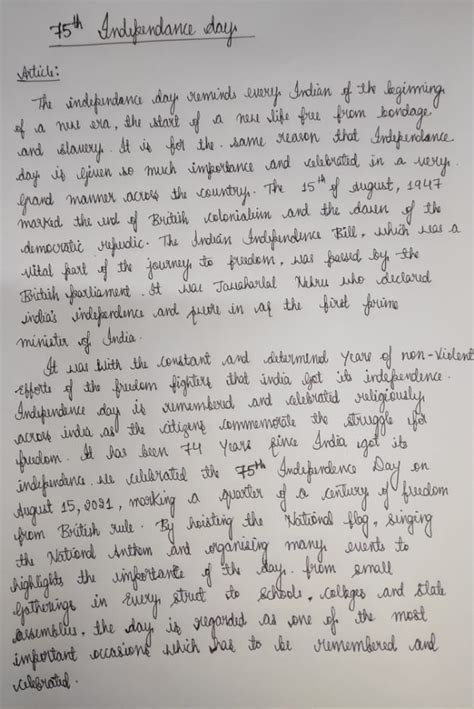 75th Independance day
Article:
The independance day reminds every Indian of the beginning
of a new era, the start of a new life free from bondage
and slavery. It is for the same reason that Independance
day is given so much importance and celebrated in a very
grand manner across the country. The 15th of august, 1947
marked the end of British colonialism and the dawn of the
democratic republic. The Indian Independence Bill, which was a
vital part of the journey to freedom, was passed by the
British parliament. It was Jawaharlal Nehru who declared
india's independence and swore in as the first prime
minister of India.
It was with the constant and determined years of non-violent
efforts of the freedom fighters that india got its independence.
Independence day is remembered and celebrated religiously
across india as the citizens commemorate the struggle for
freedom. It has been 74 Years since India got its
independence. we celebrated the 75th Independence Day on
August 15, 2021, marking a quarter of a century of freedom
from British rule. By hoisting the National flag, singing
the National Anthem and organising many events to
highlights the importance of the day. from small
gatherings in every street to schools, colleges and state
assemblies, the day is regarded as one of the most
important occasions which has to be remembered and
celebrated.